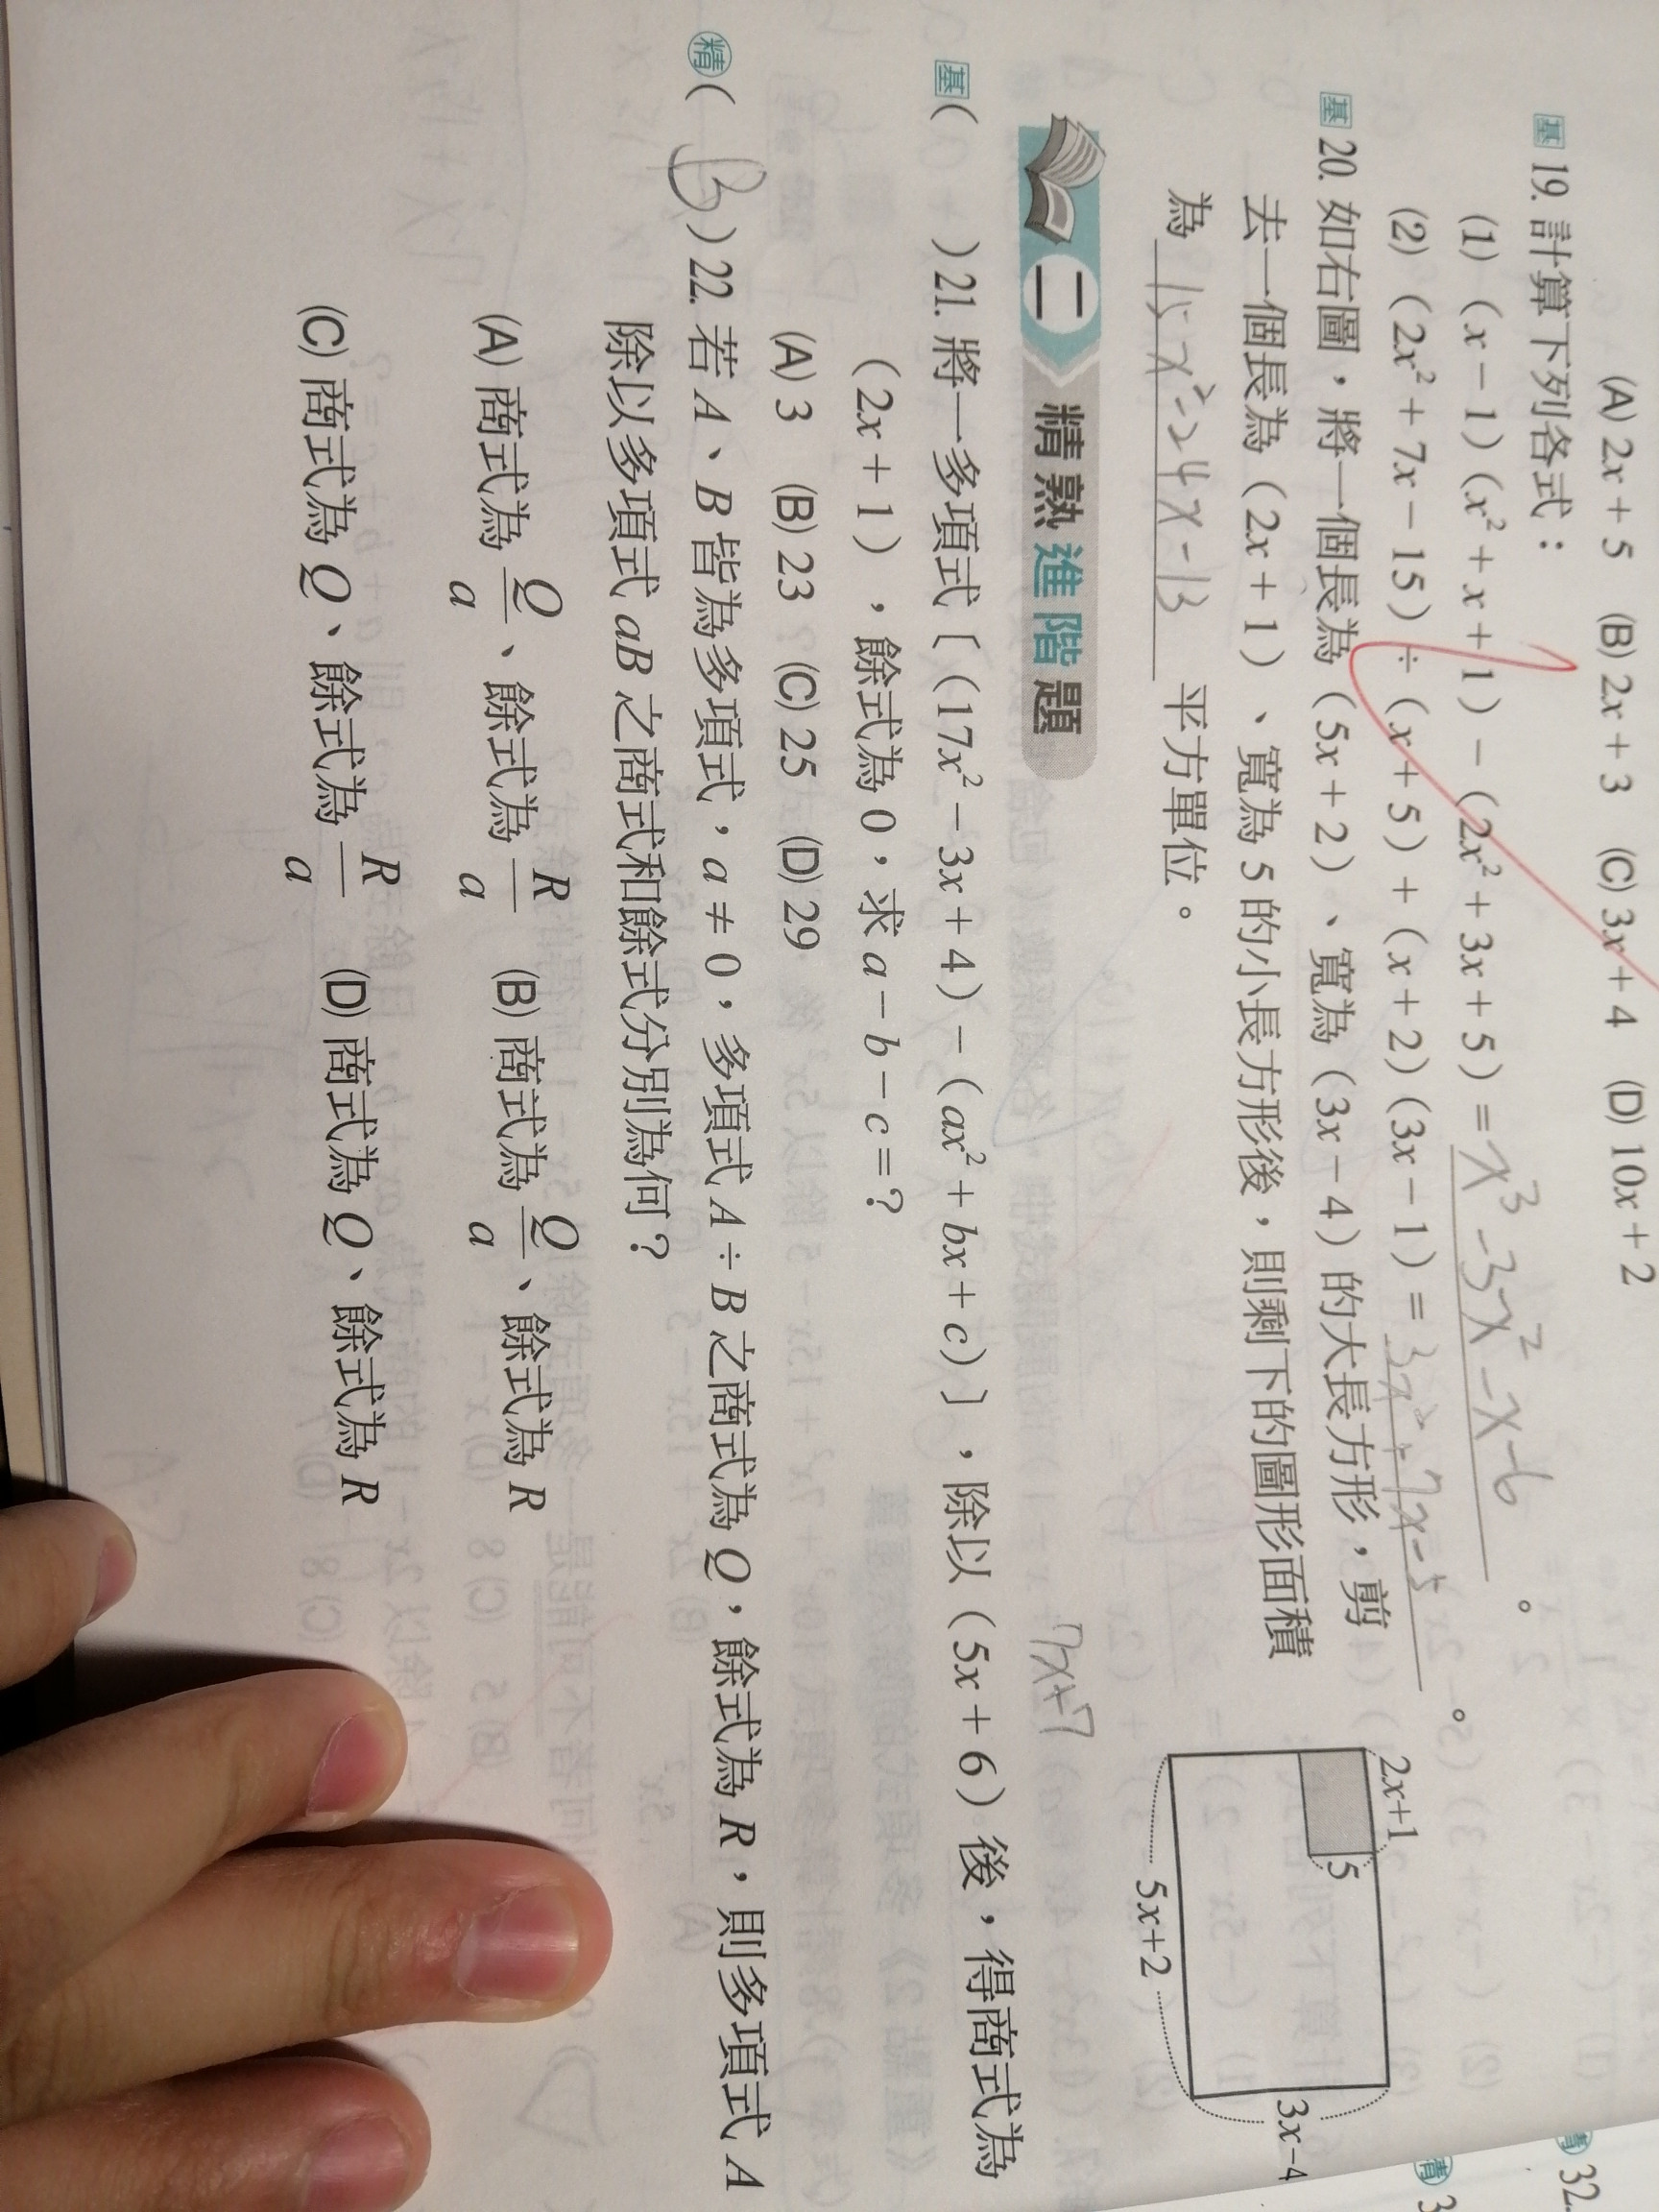 (A) 2x + 5 (B) 2x + 3 (C) 3x + 4 (D) 10x + 2
基 19. 計算下列各式：
(1) (x－1)(x²＋x＋1)－(2x²＋3x＋5)＝x³-3x²-x-6。
(2) (2x²＋7x－15)÷(x＋5)＋(x＋2)(3x－1)＝3x²+7x-5。
基 20. 如右圖，將一個長為(5x＋2)、寬為(3x－4)的大長方形，剪
去一個長為(2x＋1)、寬為5的小長方形後，則剩下的圖形面積
為 15x²-24x-13 平方單位。
2x+1
5
5x+2
3x-4
二 精熟進階題
7x+7
基 ( ) 21. 將一多項式〔(17x²－3x＋4)－(ax²＋bx＋c)〕，除以(5x＋6)後，得商式為
(2x＋1)，餘式為0，求a－b－c＝？
(A) 3 (B) 23 (C) 25 (D) 29
精 ( B ) 22. 若A、B皆為多項式，a≠0，多項式A÷B之商式為Q，餘式為R，則多項式A
除以多項式aB之商式和餘式分別為何？
(A) 商式為Q/a、餘式為R/a (B) 商式為Q/a、餘式為R
(C) 商式為Q、餘式為R/a (D) 商式為Q、餘式為R
精 32.
精 3